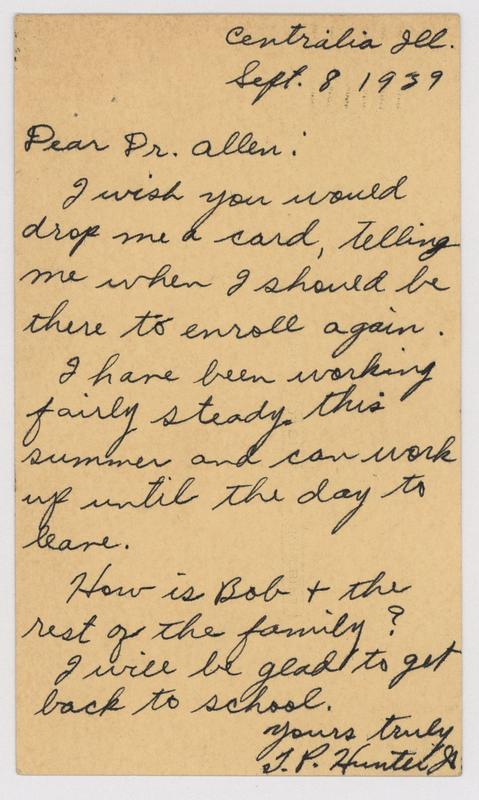 Centralia Ill.
Sept. 8 1939
Dear Dr. Allen:
I wish you would
drop me a card, telling
me when I should be
there to enroll again.
I have been working
fairly steady this
summer and can work
up until the day to
leave.
How is Bob + the
rest of the family?
I will be glad to get
back to school.
Yours truly
T. P. Hunter Jr